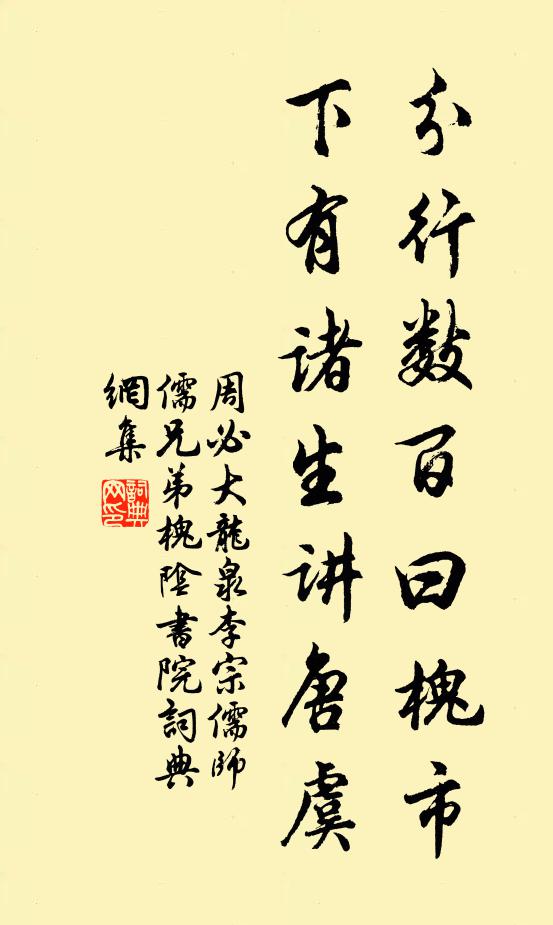 分行数百曰槐市
下有诸生讲唐虞
周必大龍泉李宗儒師
儒兄弟槐陰書院詞典
網集
詞典
网印